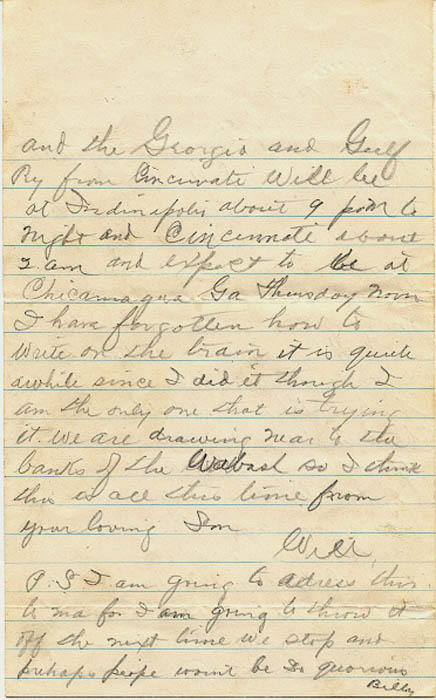 and the Georgia and Gulf
Ry from Cincinnati Will be
at Indinapolis about 9 pm to
night and Cincinnati about
2 am and expect to be at
Chicamagua Ga Thursday noon
I have forgotten how to
write on the train it is quite
awhile since I did it though I
am the only one that is trying
it. We are drawing near to the
banks of the Wabash so I think
this is all this time from
your loving Son
Will
P.S I am going to adress this
to ma for I am going to throw it
off the next time we stop and
perhaps peope wont be so
Billy